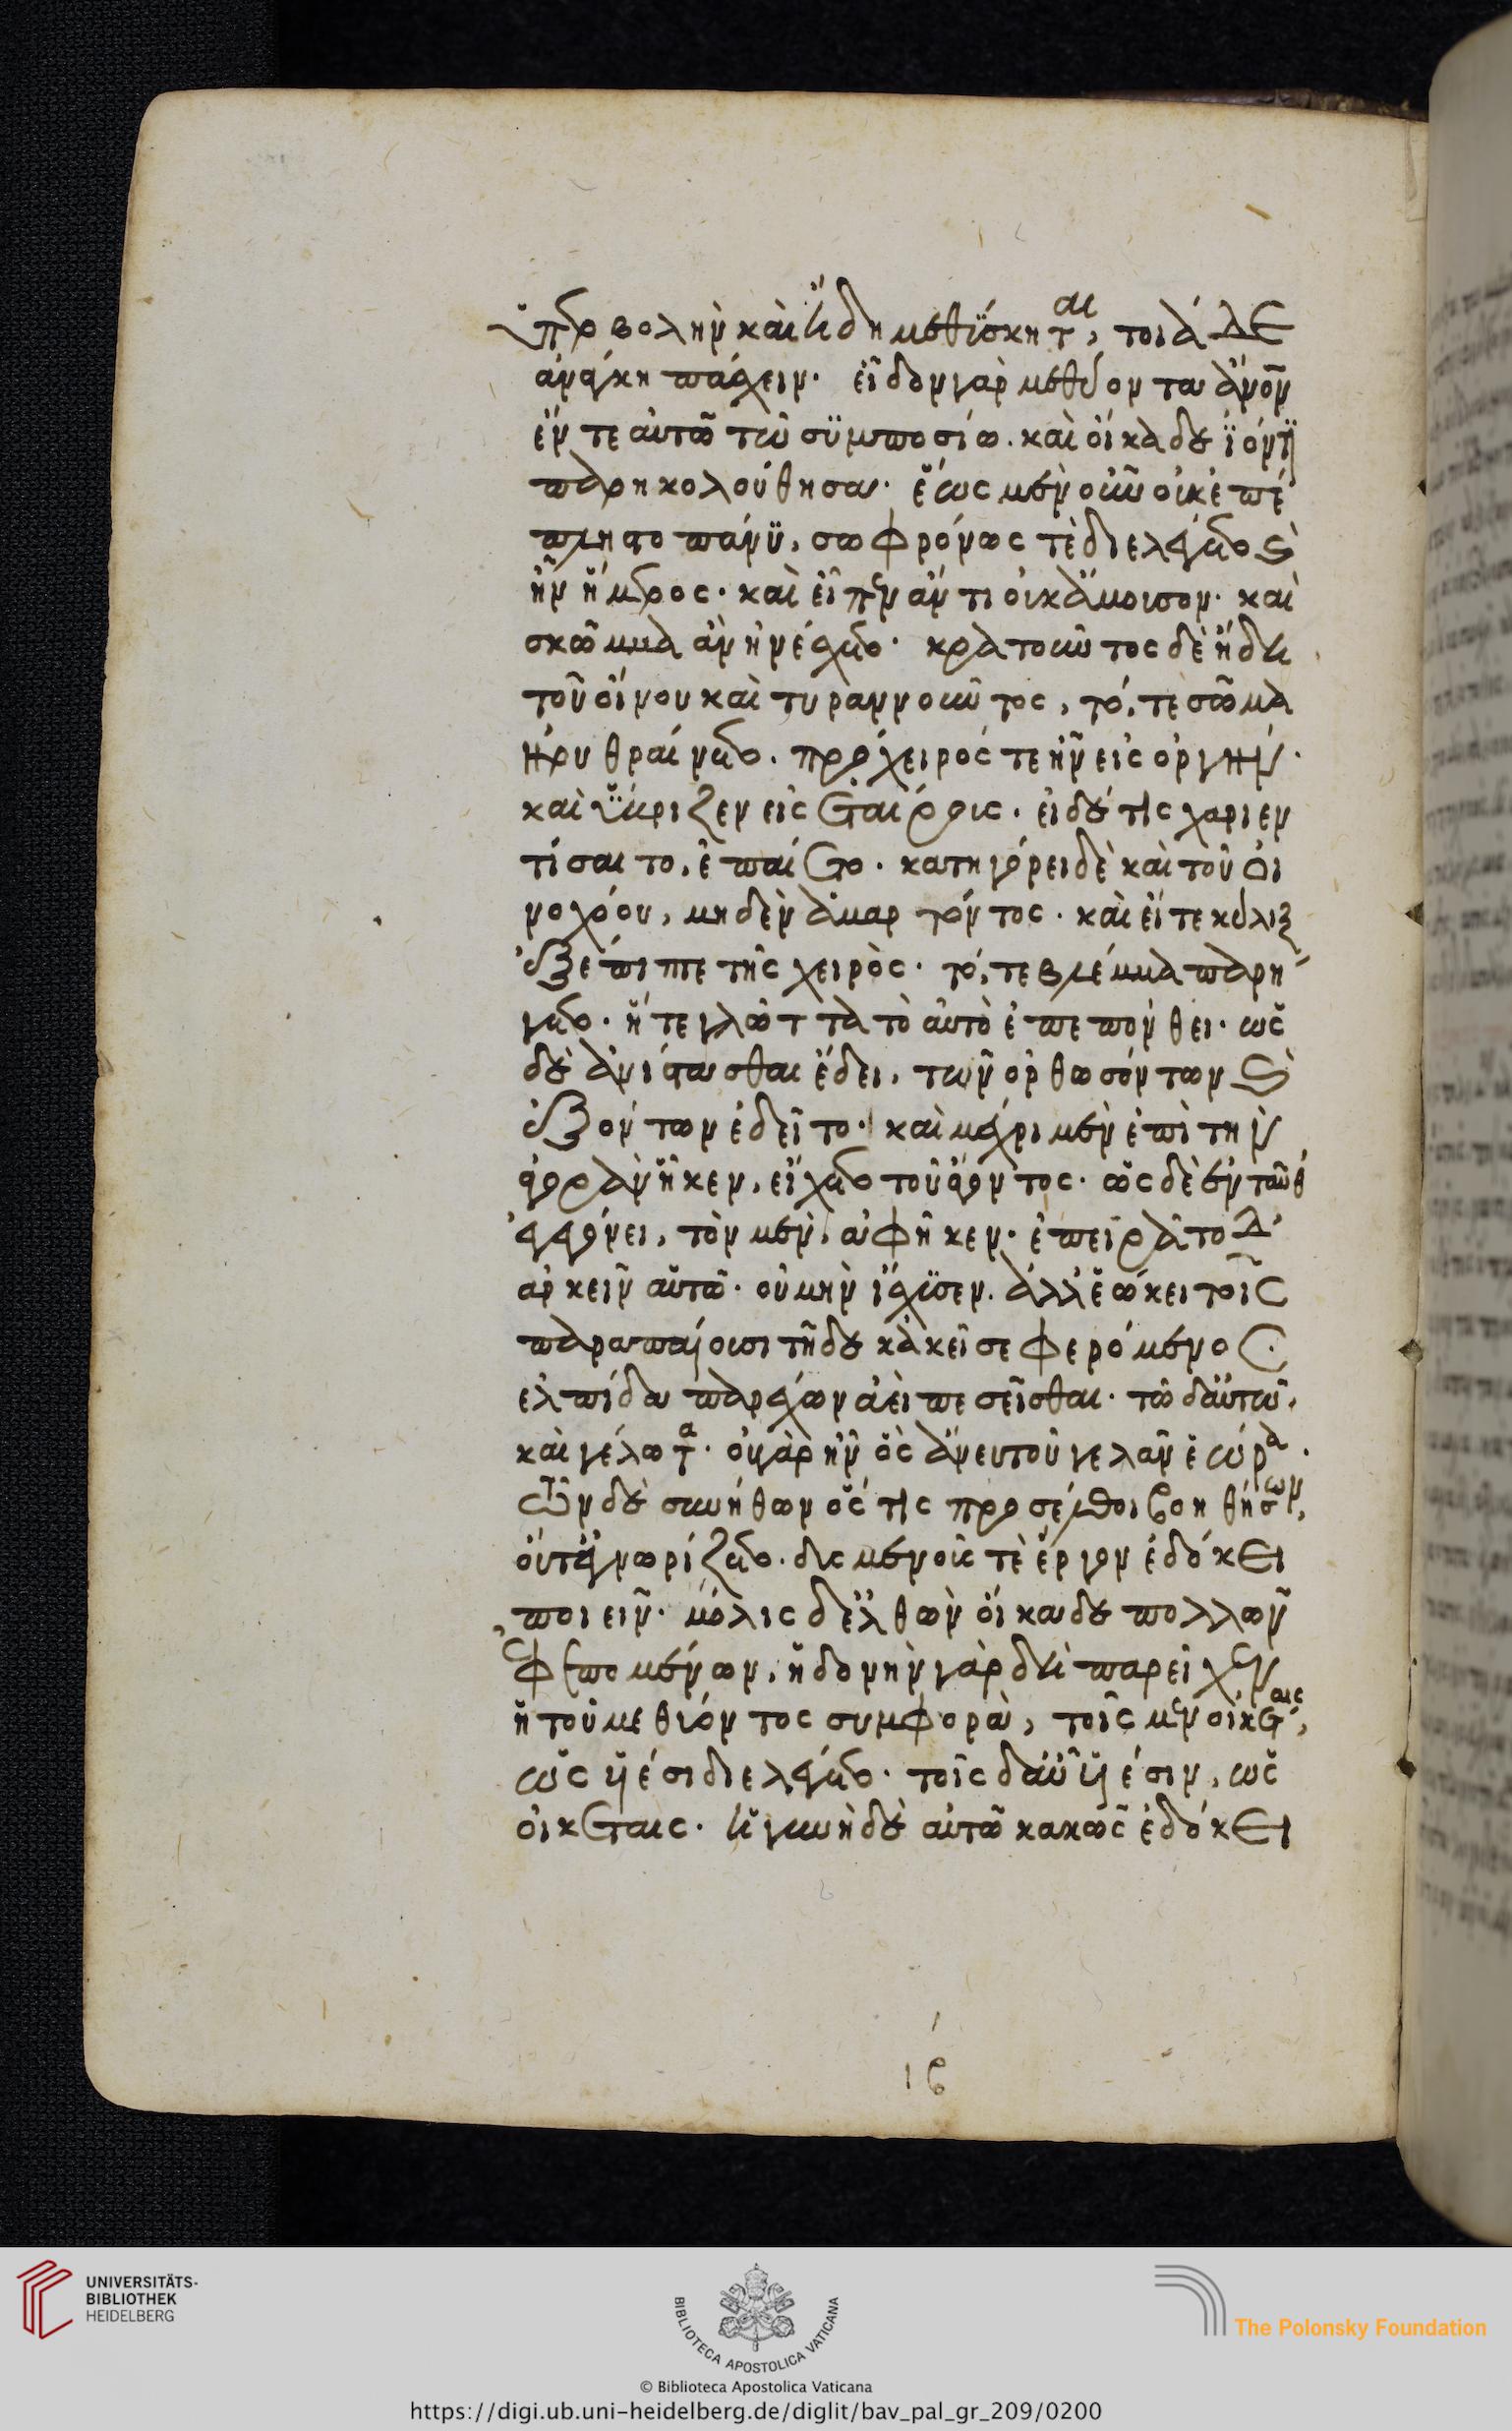 ὑπερβολὴν καὶ ἤδη μεθύσκηται, τοιάδε
ἀνάγκη πάσχειν. εἶδον γὰρ μεθύοντα ἄνον
ἔν τε αὐτῶ τῶ συμποσίω. καὶ οἴκαδε ἰόντι
παρηκολούθησα. ἕως μὲν οὖν οὐκ ἐπέ
πληστο πάνυ, σωφρόνως τὲ διελέγετο καὶ
ἦν ἥμερος. καὶ εἶπεν ἄν τι οὐκ ἄμουσον. καὶ
σκῶμμα ἂν ἠνέσχετο. κρατοῦντος δὲ ἤδη
τοῦ οἴνου καὶ τυραννοῦντος, τό, τε σῶμα
ἠρυθραίνετο. πρόχειρός τε ἦν εἰς ὀργήν.
καὶ ὕβριζεν εἰς ἑταίρους. εἰ δέ τις χαριεν
τίσαιτο, ἐπαίετο. κατηγόρει δὲ καὶ τοῦ οἰ
νοχόου, μηδὲν ἁμαρτόντος. καὶ εἴ τε κύλιξ
ἐξέπιπτε τῆς χειρός. τό, τε βλέμμα παρή
γετο. ἥ τε γλῶττα τὸ αὐτὸ ἐπεπόνθει. ὡς
δὲ ἀνίστασθαι ἔδει, τῶν ὀρθωσόντων καὶ
ἐξόντων ἐδεῖτο. καὶ μέχρι μὲν ἐπὶ τὴν
ἀγορὰν ἧκεν, εἴχετο τοῦ ἄγοντος. ὡς δὲ ἐνταῦθ
ἐγεγόνει, τὸν μὲν, ἀφῆκεν. ἐπειρᾶτο δ'
ἀρκεῖν αὑτῶ. οὐ μὴν ἴσχυσεν. ἀλλ' ἐώκει τοῖς
παραπαίουσι τῆδε κἀκεῖσε φερόμενος
ἐλπίδα παρέχων ἀεὶ πεσεῖσθαι. τὸ δ' αὐτὸ,
καὶ γέλωτα. οὐ γὰρ ἦν ὃς ἄνευ τοῦ γελᾶν ἑώρα.
τῶν δὲ συνήθων ὅς τις προσέλθοι βοηθήσων,
οὔτ' ἐγνωρίζετο. δὶς μὲν οἷς τὲ ἔργον ἐδόκει
ποιεῖν. μόλις δ' ἐλθὼν οἴκαδε πολλῶν
ἐφεπομένων, ἡδονὴν γὰρ δὴ παρεῖχεν
ἡ τοῦ μεθύοντος συμφορὰ, τοῖς μὲν οἰκέταις,
ὡς υἱέσι διελέγετο. τοῖς δ' αὖ υἱέσιν, ὡς
οἰκέταις. ἡ γυνὴ δὲ αὐτῶ κακῶς ἐδόκει
16
UNIVERSITÄTS-
BIBLIOTHEK
HEIDELBERG
BIBLIOTECA APOSTOLICA VATICANA
The Polonsky Foundation
© Biblioteca Apostolica Vaticana
https://digi.ub.uni-heidelberg.de/diglit/bav_pal_gr_209/0200